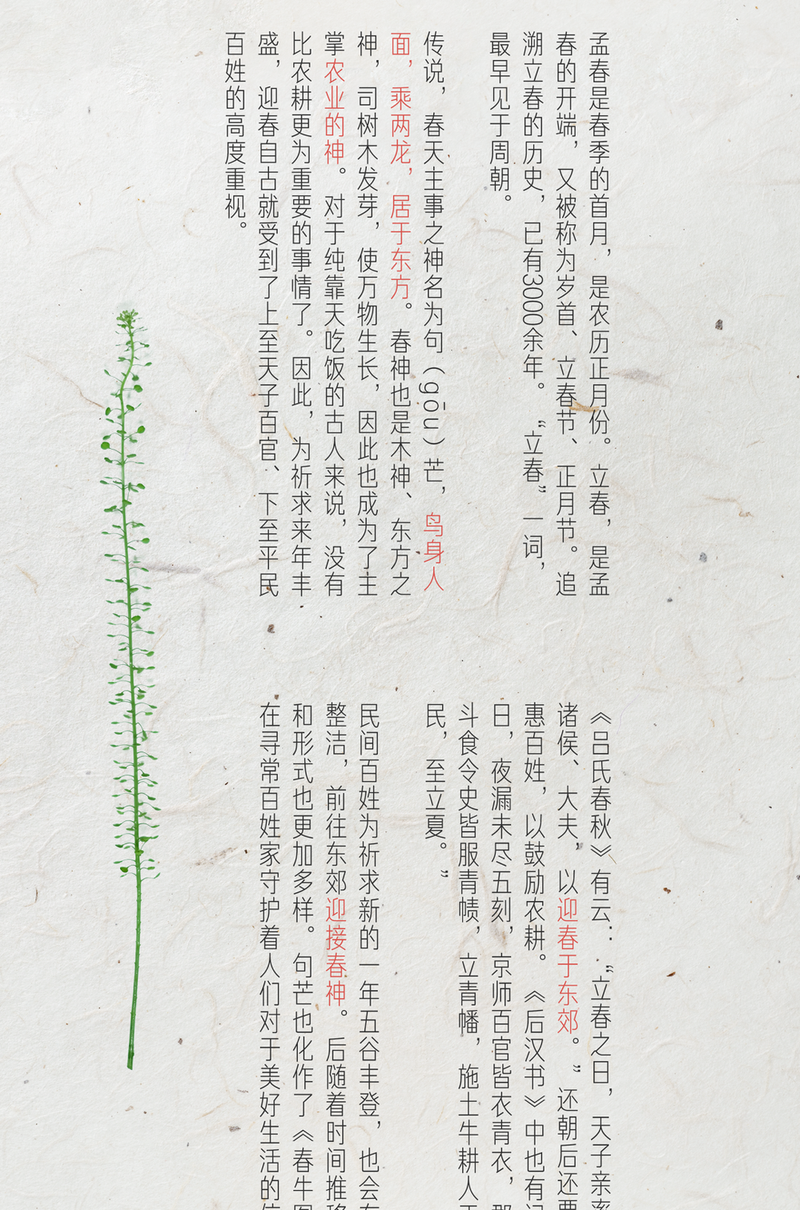 孟春是春季的首月，是农历正月份。立春，是孟
春的开端，又被称为岁首、立春节、正月节。追
溯立春的历史，已有3000余年。“立春”一词，
最早见于周朝。
传说，春天主事之神名为句（gōu）芒，鸟身人
面，乘两龙，居于东方。春神也是木神、东方之
神，司树木发芽，使万物生长，因此也成为了主
掌农业的神。对于纯靠天吃饭的古人来说，没有
比农耕更为重要的事情了。因此，为祈求来年丰
盛，迎春自古就受到了上至天子百官、下至平民
百姓的高度重视。
《吕氏春秋》有云：“立春之日，天子亲
诸侯、大夫，以迎春于东郊。”还朝后还要
惠百姓，以鼓励农耕。《后汉书》中也有记
日，夜漏未尽五刻，京师百官皆衣青衣，
斗食令史皆服青帻，立青幡，施土牛耕人
民，至立夏。”
民间百姓为祈求新的一年五谷丰登，也会在
整洁，前往东郊迎接春神。后随着时间推移
和形式也更加多样。句芒也化作了《春牛图
在寻常百姓家守护着人们对于美好生活的